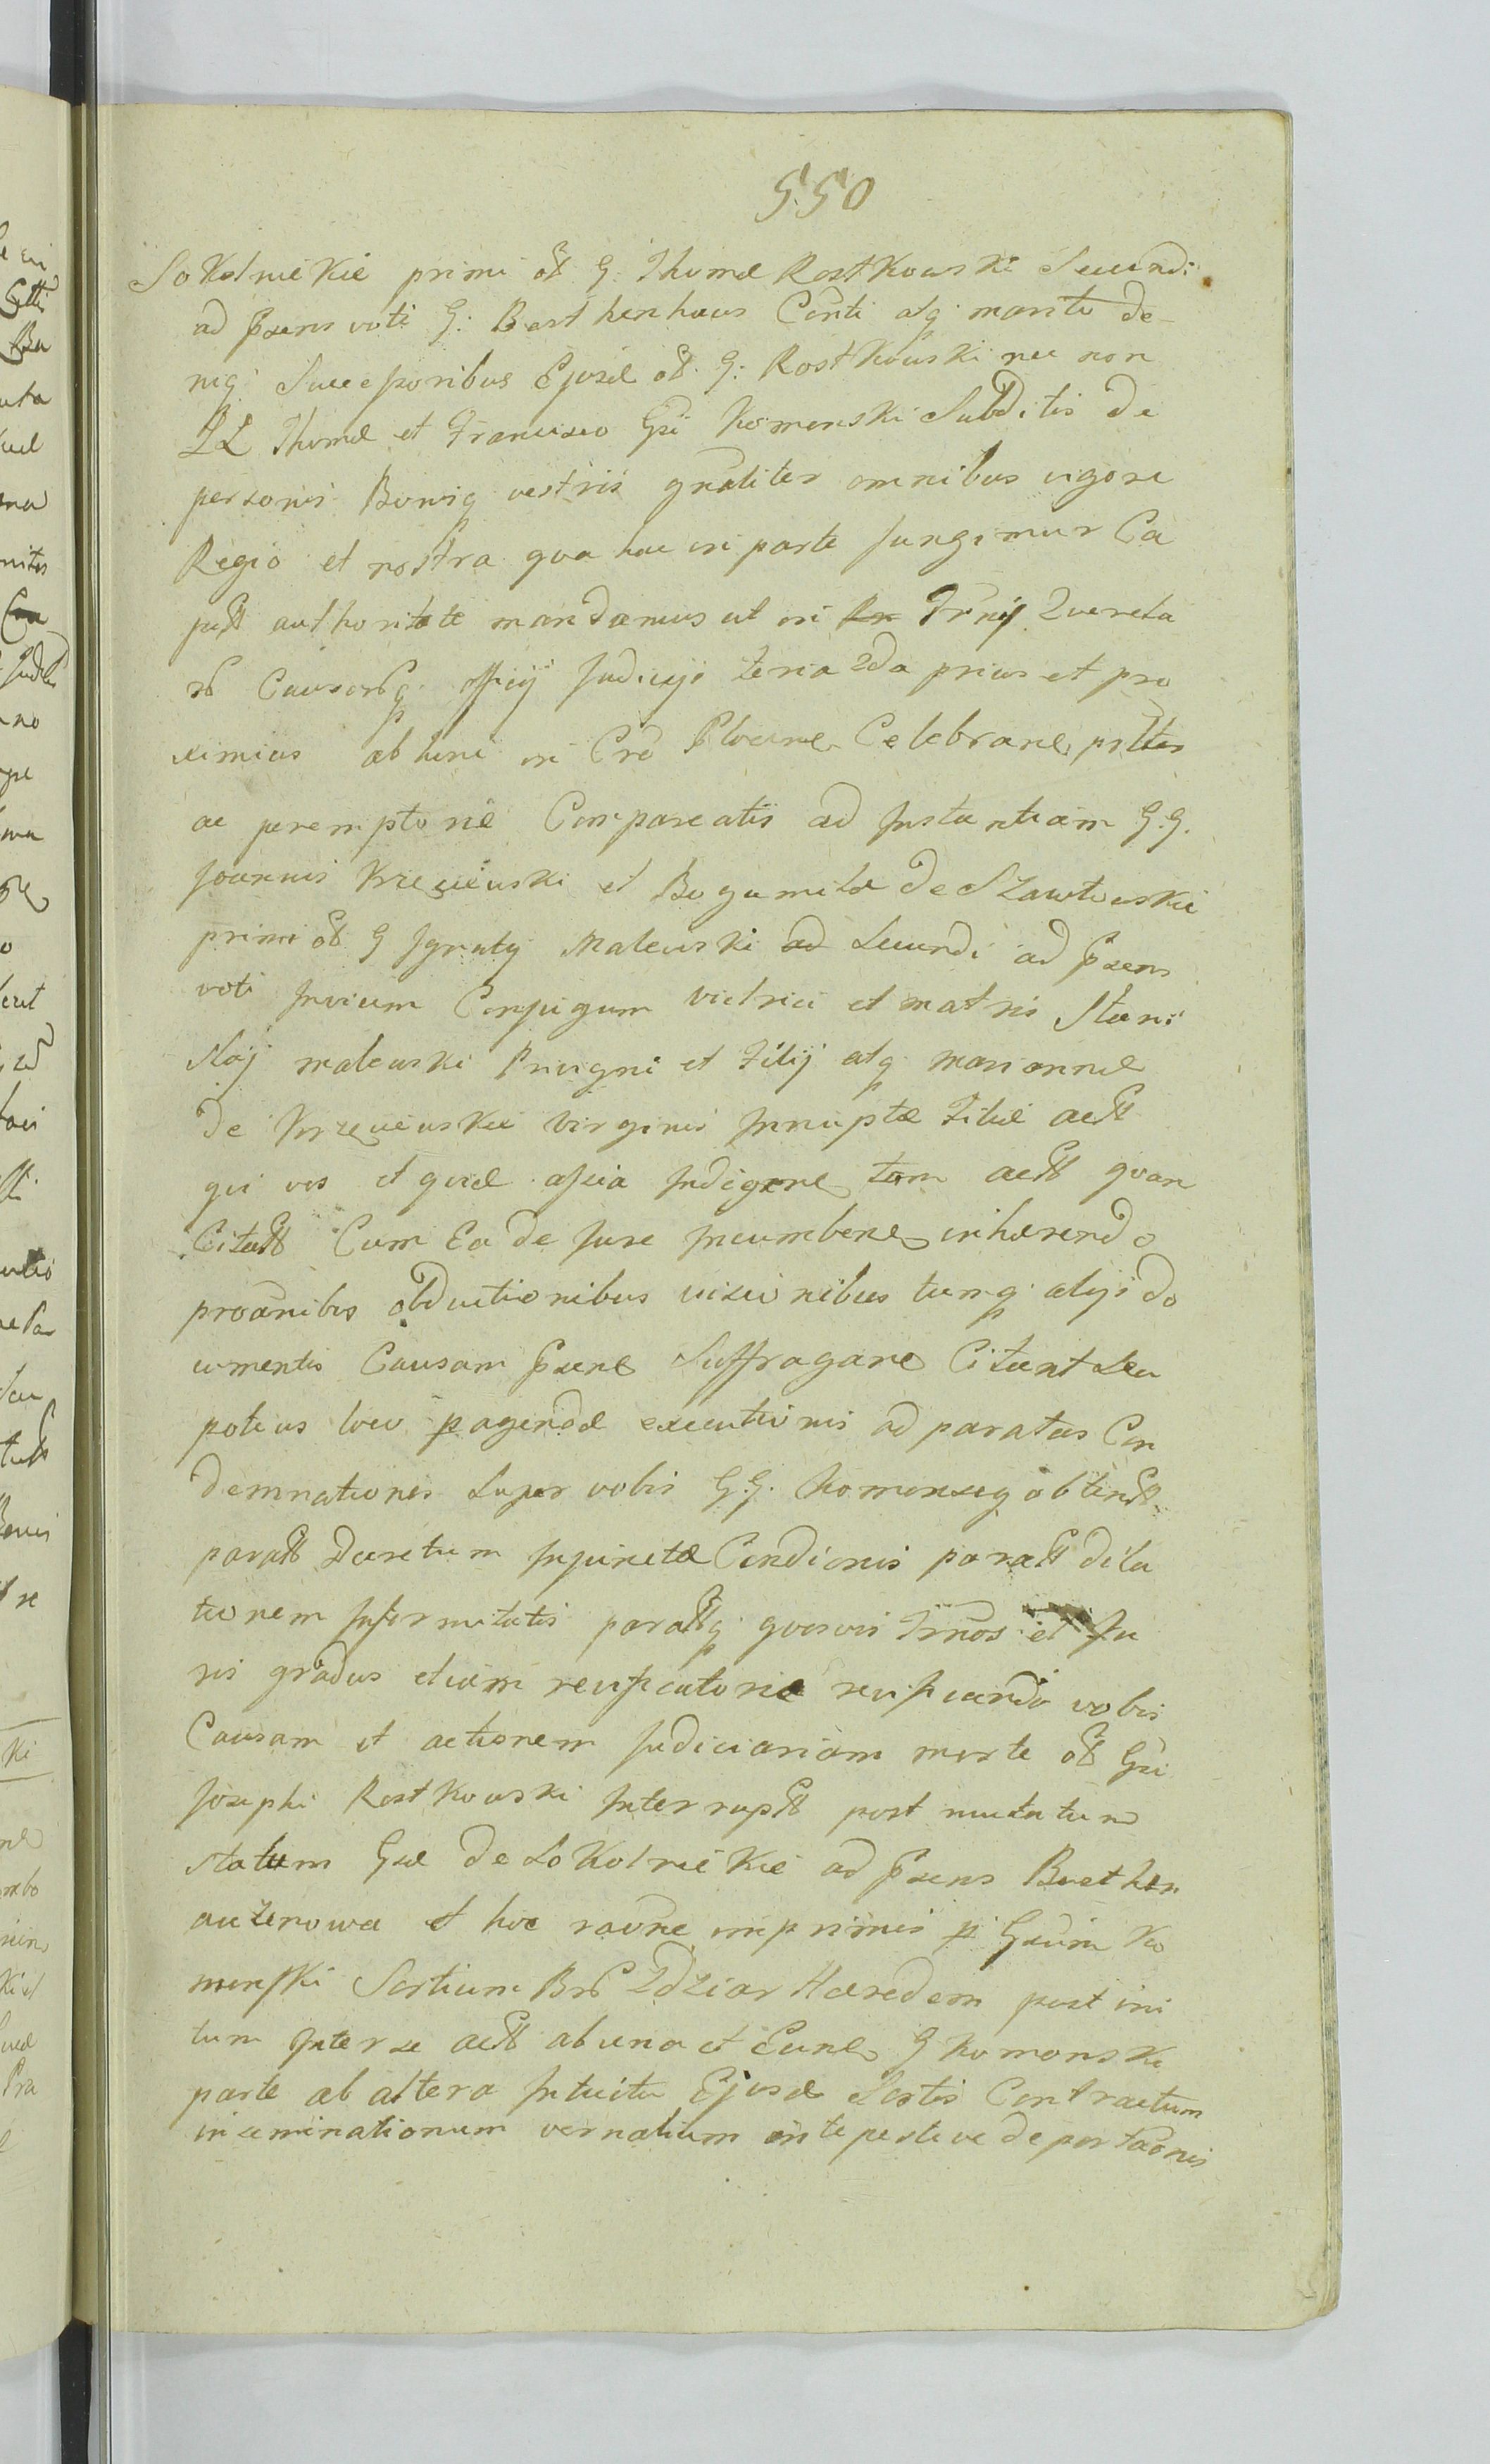 550
Sokolnickie primi ol. G. Thomæ Rostkowski Secundi
ad præsens voti G: Bert henhaus Conti atq marito de
niq Successoribus Ejusd ol. G: Rostkowski nec non
LL Thomæ et Francisco Gsi Komorski Subditis de
personis Bonisq vestris gnaliter omnibus vigore
Regio et nostra qua hac in parte fungimur Ca
pstt authoritate mandamus ut in Trnis Querela
rb Causarbq officij Judicijs feria 2da prius et pro
ximius abhinc in Cre Plocine Celebrane psltes
ac peremptorie Compareatis ad Instantiam G.G.
Joannis Krzewski et Bogumila de Szawłowskie
primi ol. G Ignatij Malewski ad Secundi ad prsens
voti Invicem Conjugum vitrici et matris Stani
slaj malewski Privigni et Filij atq mariannæ
de Krzewskie Virginis Innuptæ Filiæ actt
qui vos et quid assia Indigene tam actt quam
Citatt Cum Ea de Jure Incumbene inhærendo
proanibs obductionibus visionibus tumq alijs do
cumentis Causam prsene Suffragane Citant seu
potius loco pagendæ executionis ad paratas Con
demnationes super vobis G.G. Komorscy obtentt
paratt Decretum Injunctæ Condionis paratt dila
tionem Infirmitatis parattq quosvis Trnos et Ju
ris gradus etiam reuscutorie reussumdo vobis
Causam et actionem Judiciariam morte ol. Gsi
Josephi Rostkowski Interruptt post mutatum
statum Gsæ de Sokolnickie ad prsens Buethen
auzenowa et hoc raone imprimis p Gsum Ko
morski Sortium Brb Zdziar Hæredem post ini
tum Inter se actt ab una et Eund G Komorski
parte ab altera Intuitu Ejusd Sortis Contractum
inseminationum vernalium intepestive deportaonis